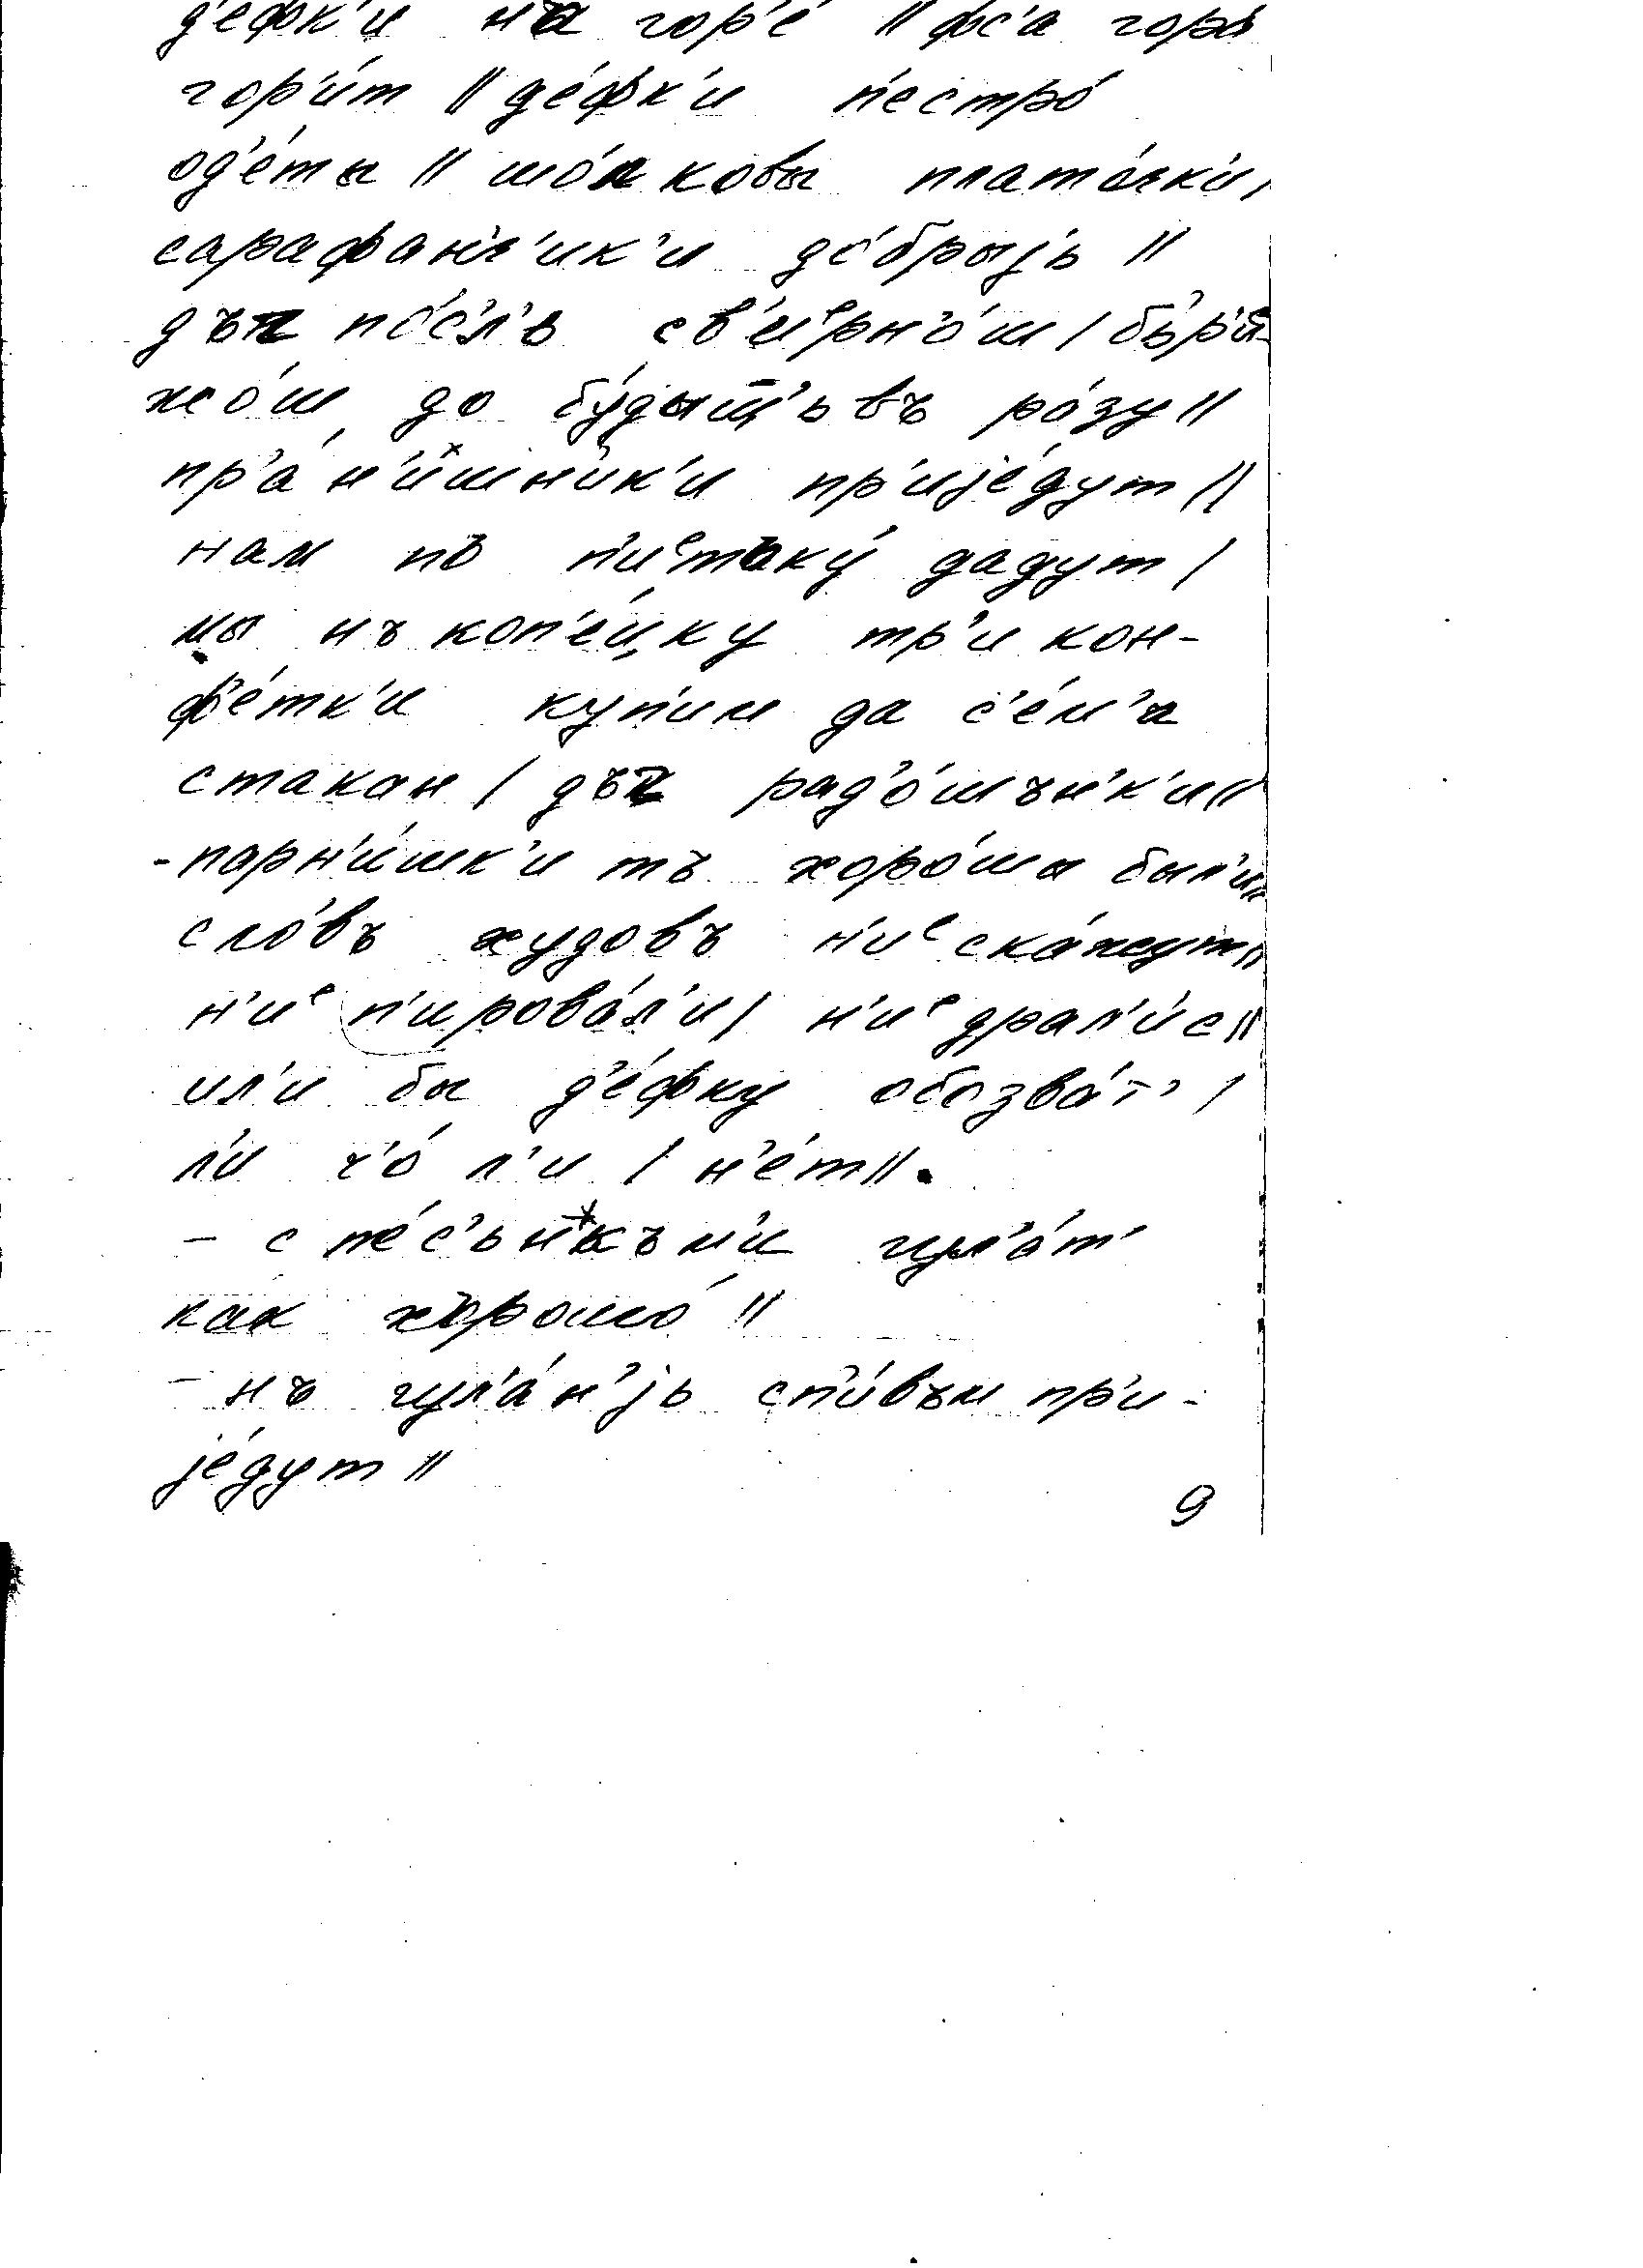 д'е́фк'и на гор'е́ // фс'а гора́
гор'и́т // д'е́фк'и п'естро́
од'е́ты // шо́лковы плато́чк'и /
сарафа́нч'ик'и до́брыjь //
дък по́с'л'ь св'иᵉрн'о́ш / бьр'и-
жо́ш до бу́дыш':ьвъ ро́зу //
пр'а́н'ишник'и пр'иjе́дут //
нам пъ п'иᵉтаку́ даду́т /
мы нъ коп'е́йку тр'и кон-
ф'е́тк'и ку́п'им да с'е́м'а
стакан / дък рад'о́шън'к'и //
- парн'и́шк'и тъ хоро́шы был'и //
сло́въ худовъ н'иᵉ ска́жут //
н'иᵉ п'ирова́л'и / н'иᵉ драл'и́с //
ил'и бы д'е́фку обозва́т' /
л'и ч'о́ л'и / н'е́т //.
- с п'е́с'ънкъм'и гул'а́т'
как хърошо́ //
- нъ гул'а́н'jь сп'и́въм пр'и-
jе́дут //
9